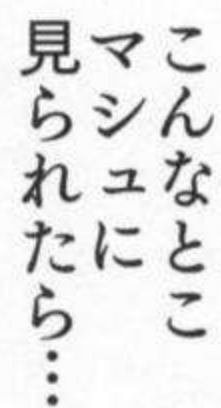 こんなとこ
マシュに
見られたら…